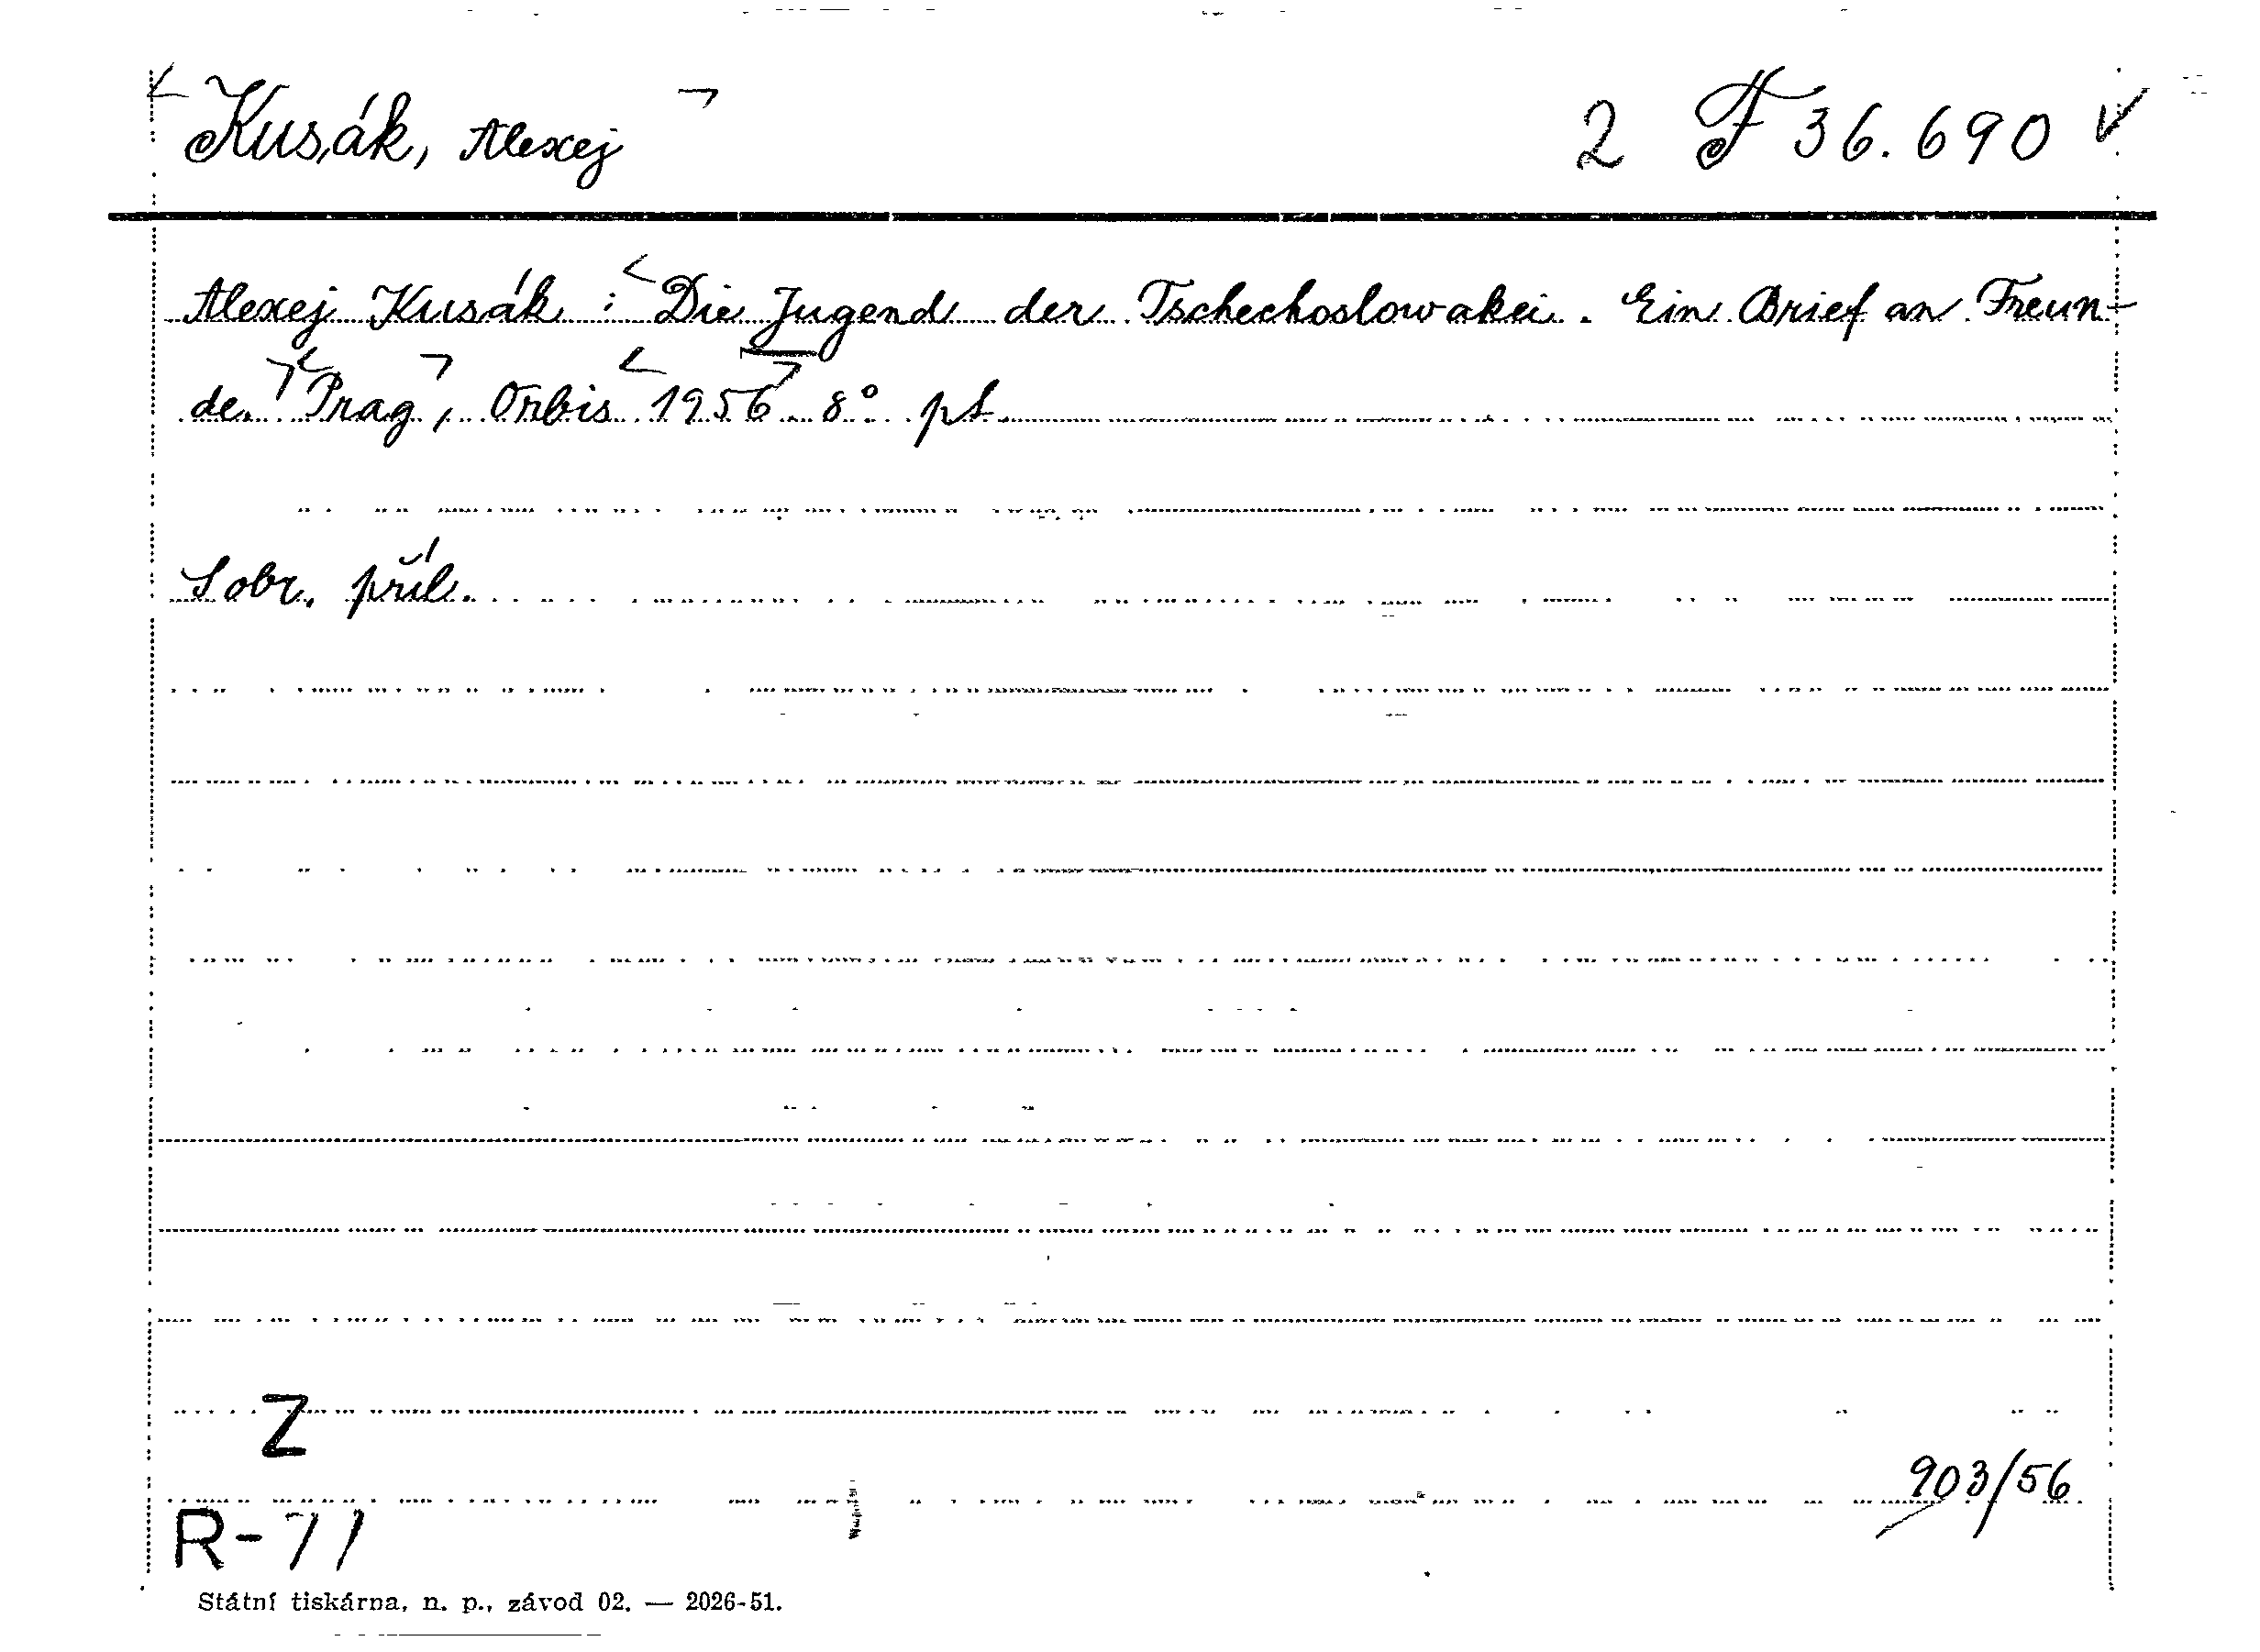 Kusák, Alexej 2 F 36.690
Alexej Kusák: Die Jugend der Tschechoslowakei. Ein Brief an Freun-
de. Prag, Orbis 1956 8° pt.
S obr. příl.
Z
903/56
R-71
Státní tiskárna, n. p., závod 02. — 2026-51.